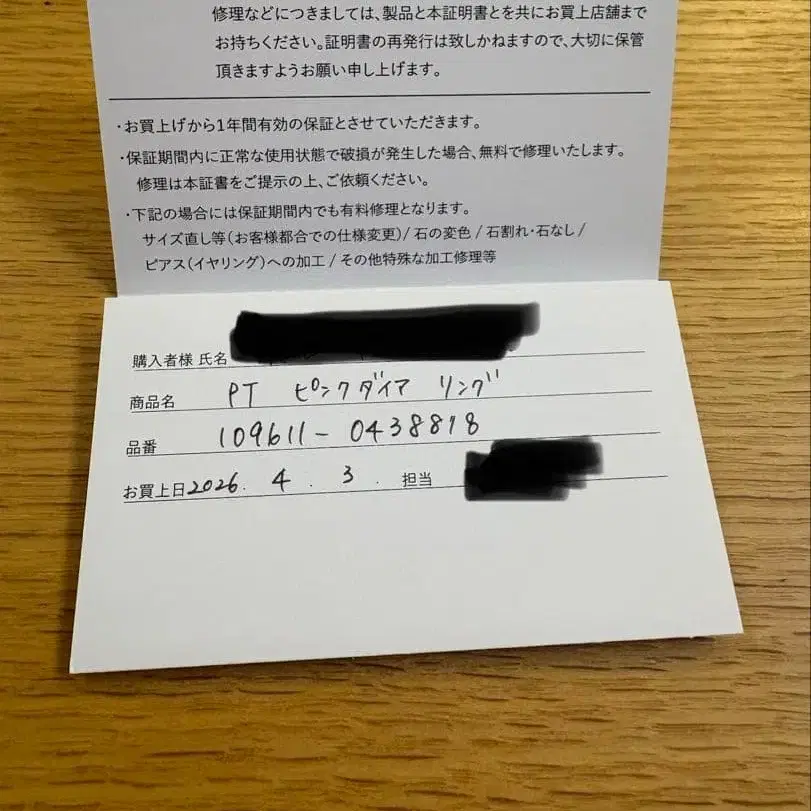 修理などにつきましては、製品と本証明書とを共にお買上店舗まで
お持ちください。証明書の再発行は致しかねますので、大切に保管
頂きますようお願い申し上げます。
・お買上げから1年間有効の保証とさせていただきます。
・保証期間内に正常な使用状態で破損が発生した場合、無料で修理いたします。
修理は本証書をご提示の上、ご依頼ください。
・下記の場合には保証期間内でも有料修理となります。
サイズ直し等(お客様都合での仕様変更)/ 石の変色 / 石割れ・石なし /
ピアス(イヤリング)への加工 / その他特殊な加工修理等
購入者様 氏名
商品名 PT ピンクダイア リング
品番 109611-0438818
お買上日 2026. 4. 3. 担当